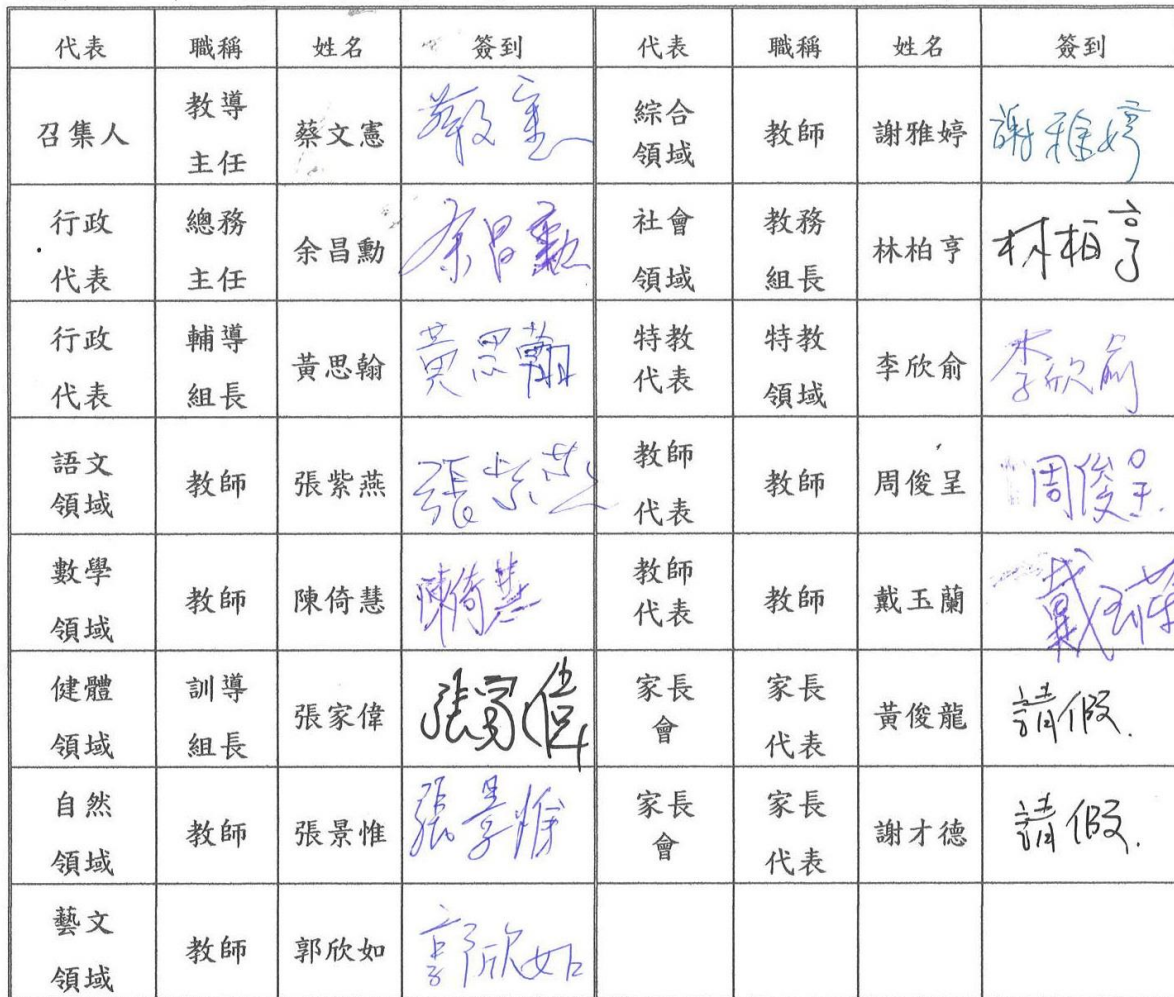 代表 職稱 姓名 簽到 代表 職稱 姓名 簽到
召集人 教導主任 蔡文憲 綜合領域 教師 謝雅婷 謝雅婷
行政代表 總務主任 余昌勳 余昌勳 社會領域 教務組長 林柏亨 林柏亨
行政代表 輔導組長 黃思翰 黃思翰 特教代表 特教領域 李欣俞 李欣俞
語文領域 教師 張紫燕 張紫燕 教師代表 教師 周俊呈 周俊呈
數學領域 教師 陳倚慧 陳倚慧 教師代表 教師 戴玉蘭 戴玉蘭
健體領域 訓導組長 張家偉 張家偉 家長會 家長代表 黃俊龍 請假.
自然領域 教師 張景惟 張景惟 家長會 家長代表 謝才德 請假.
藝文領域 教師 郭欣如 郭欣如